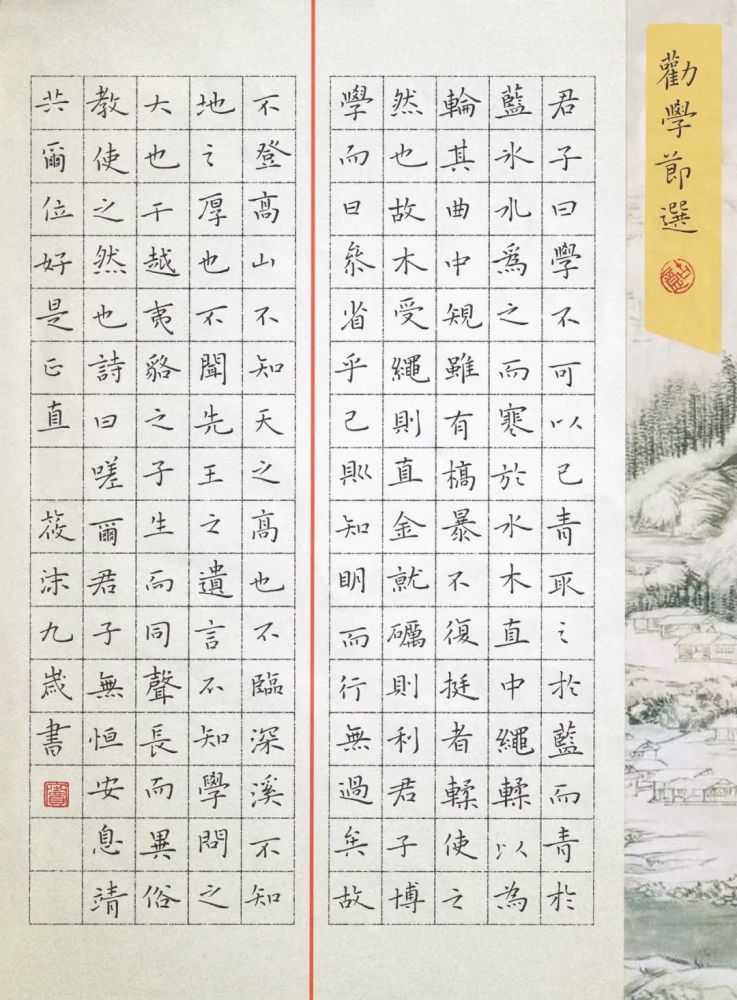 勸學節選
君子曰學不可以已青取之於藍而青於
藍冰水爲之而寒於水木直中繩輮以為
輪其曲中規雖有槁暴不復挺者輮使之
然也故木受繩則直金就礪則利君子博
學而日參省乎己則知明而行無過矣故
不登高山不知天之高也不臨深溪不知
地之厚也不聞先王之遺言不知學問之
大也干越夷貉之子生而同聲長而異俗
教使之然也詩曰嗟爾君子無恒安息靖
共爾位好是正直
筱沫九歲書